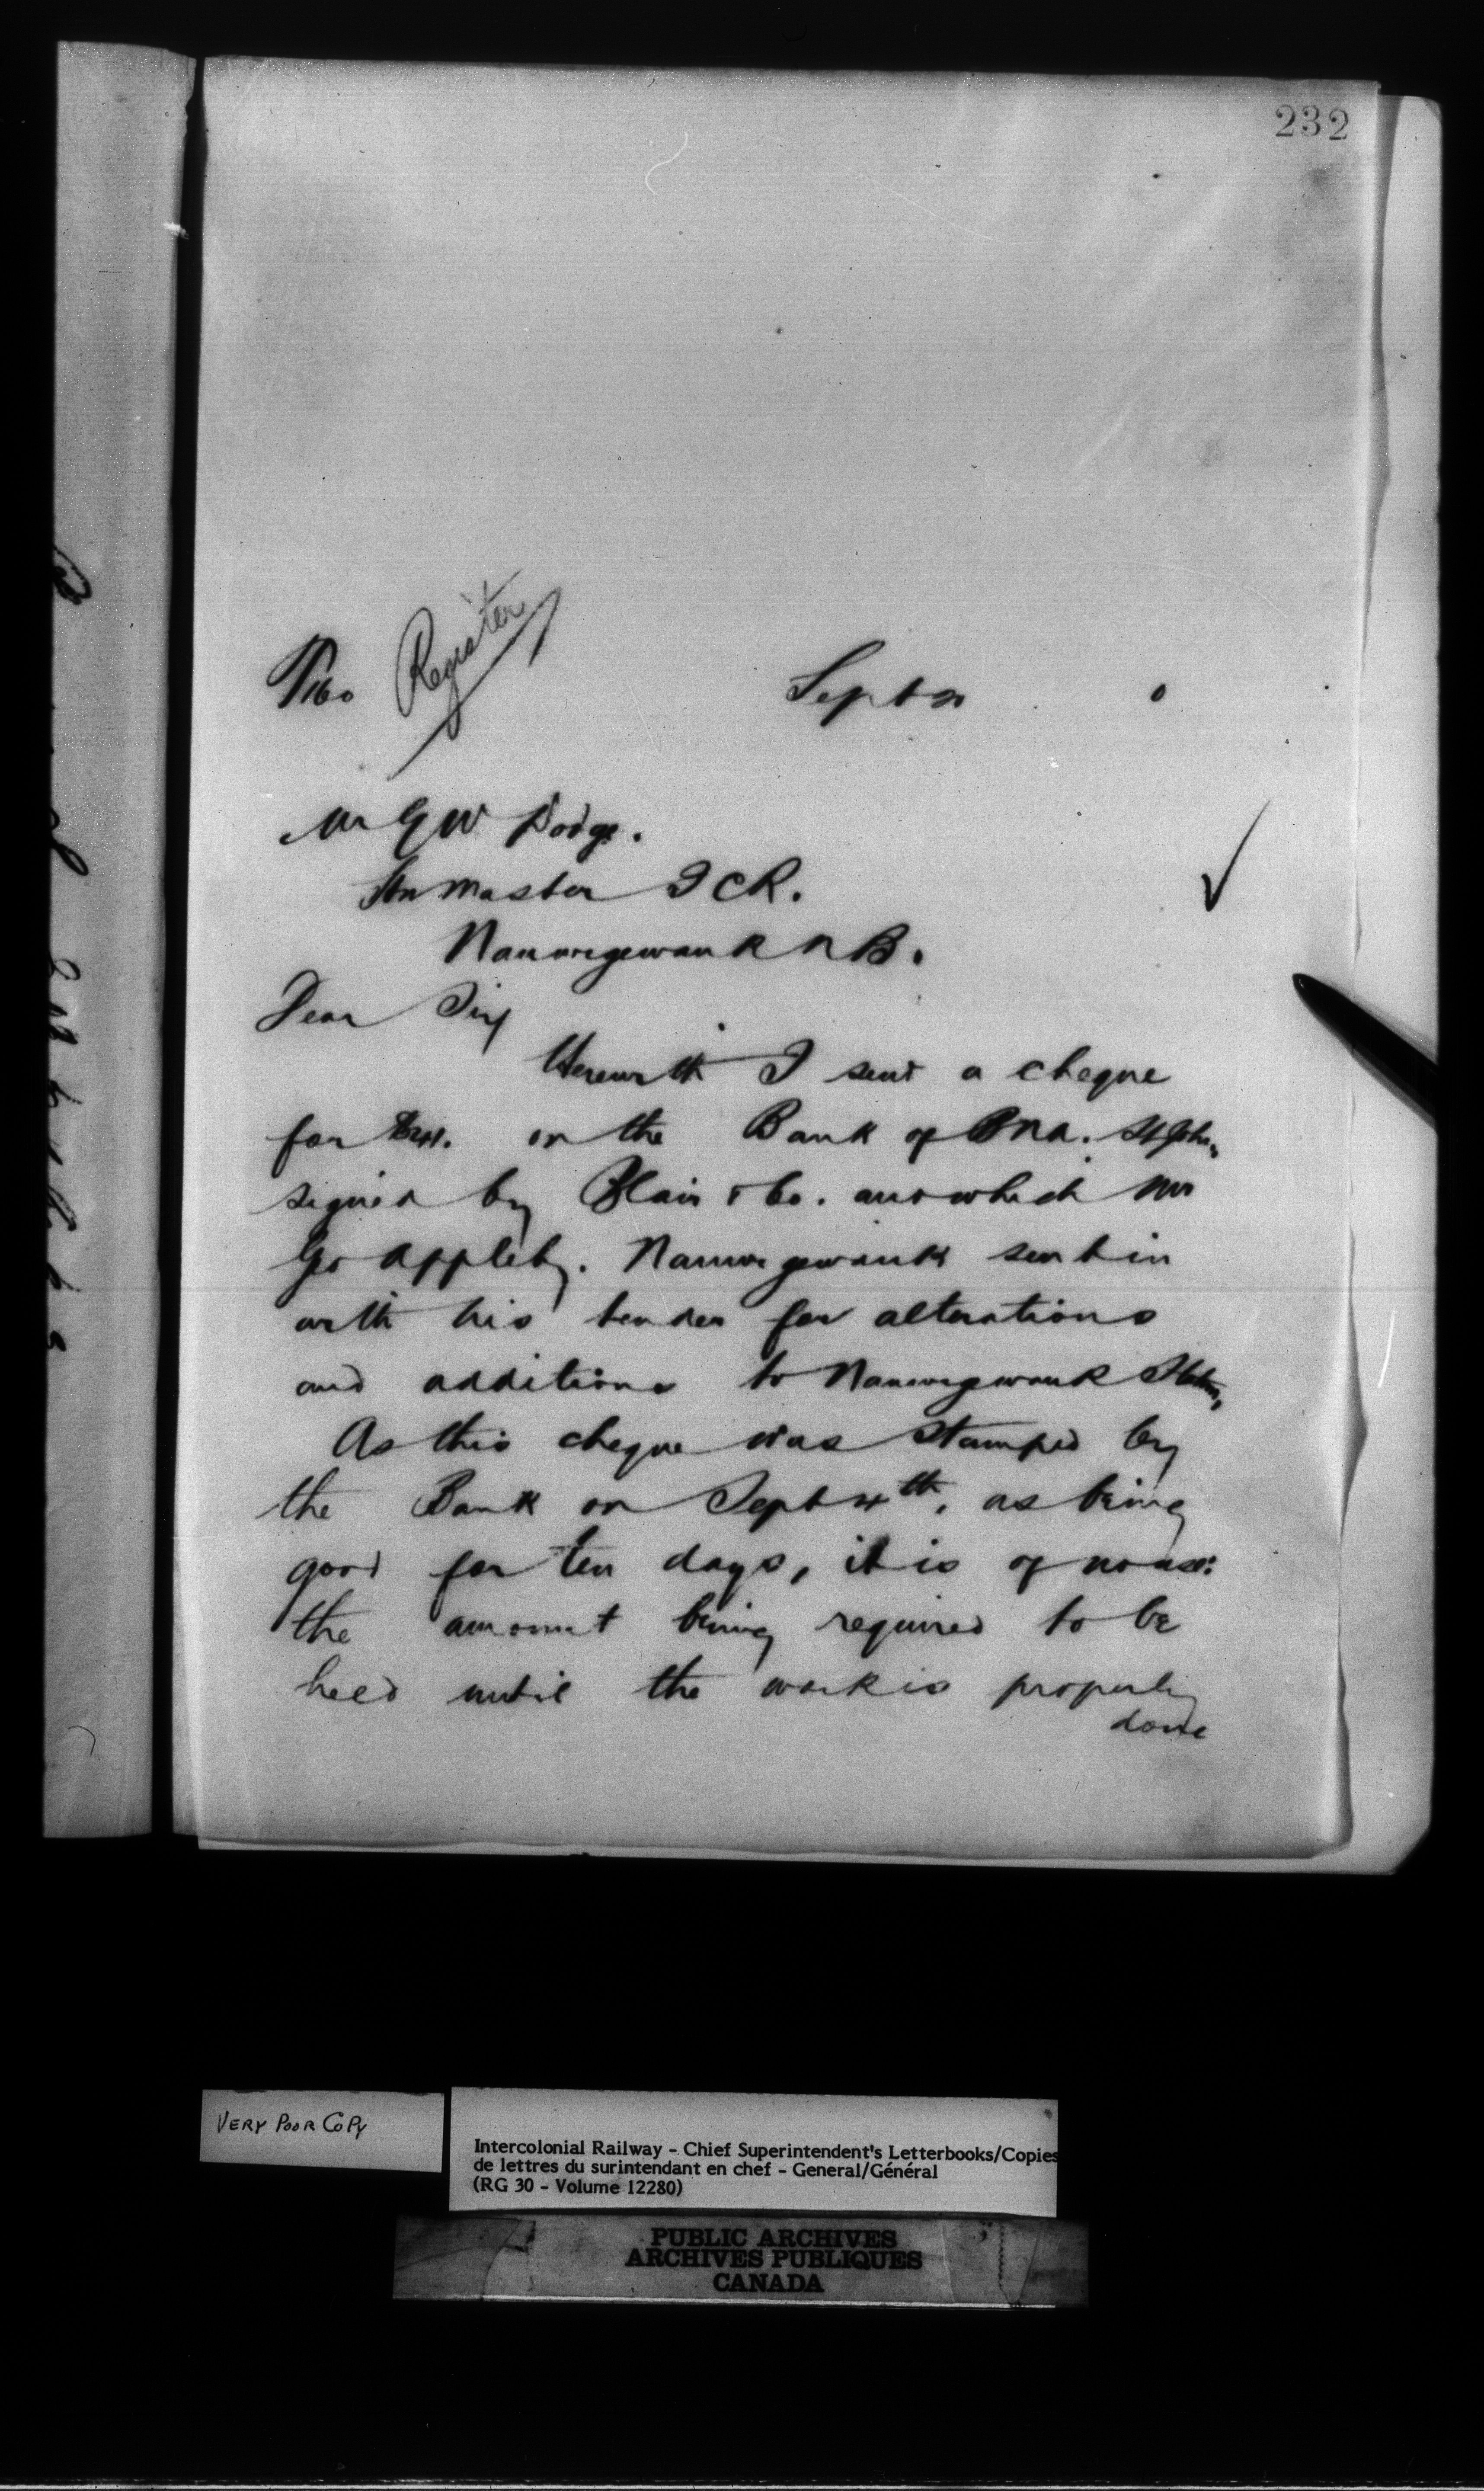 232
Register
Sept
0
Mr G W Dodge.
Stn Master I C R.
Nauwigewauk N B.
Dear Sir
Herewith I send a cheque
for on the Bank of B N A. St John,
signed by Blair & Co. and which Mr
Geo Appleby. Nauwigewauk sent in
with his tender for alterations
and additions to Nauwigewauk Station,
As this cheque was stamped by
the Bank on Sept 4th, as being
good for ten days, it is of no use:
the amount being required to be
held until the work is properly
done
VERY POOR COPY
Intercolonial Railway - Chief Superintendent's Letterbooks/Copies
de lettres du surintendant en chef - General/Général
(RG 30 - Volume 12280)
PUBLIC ARCHIVES
ARCHIVES PUBLIQUES
CANADA